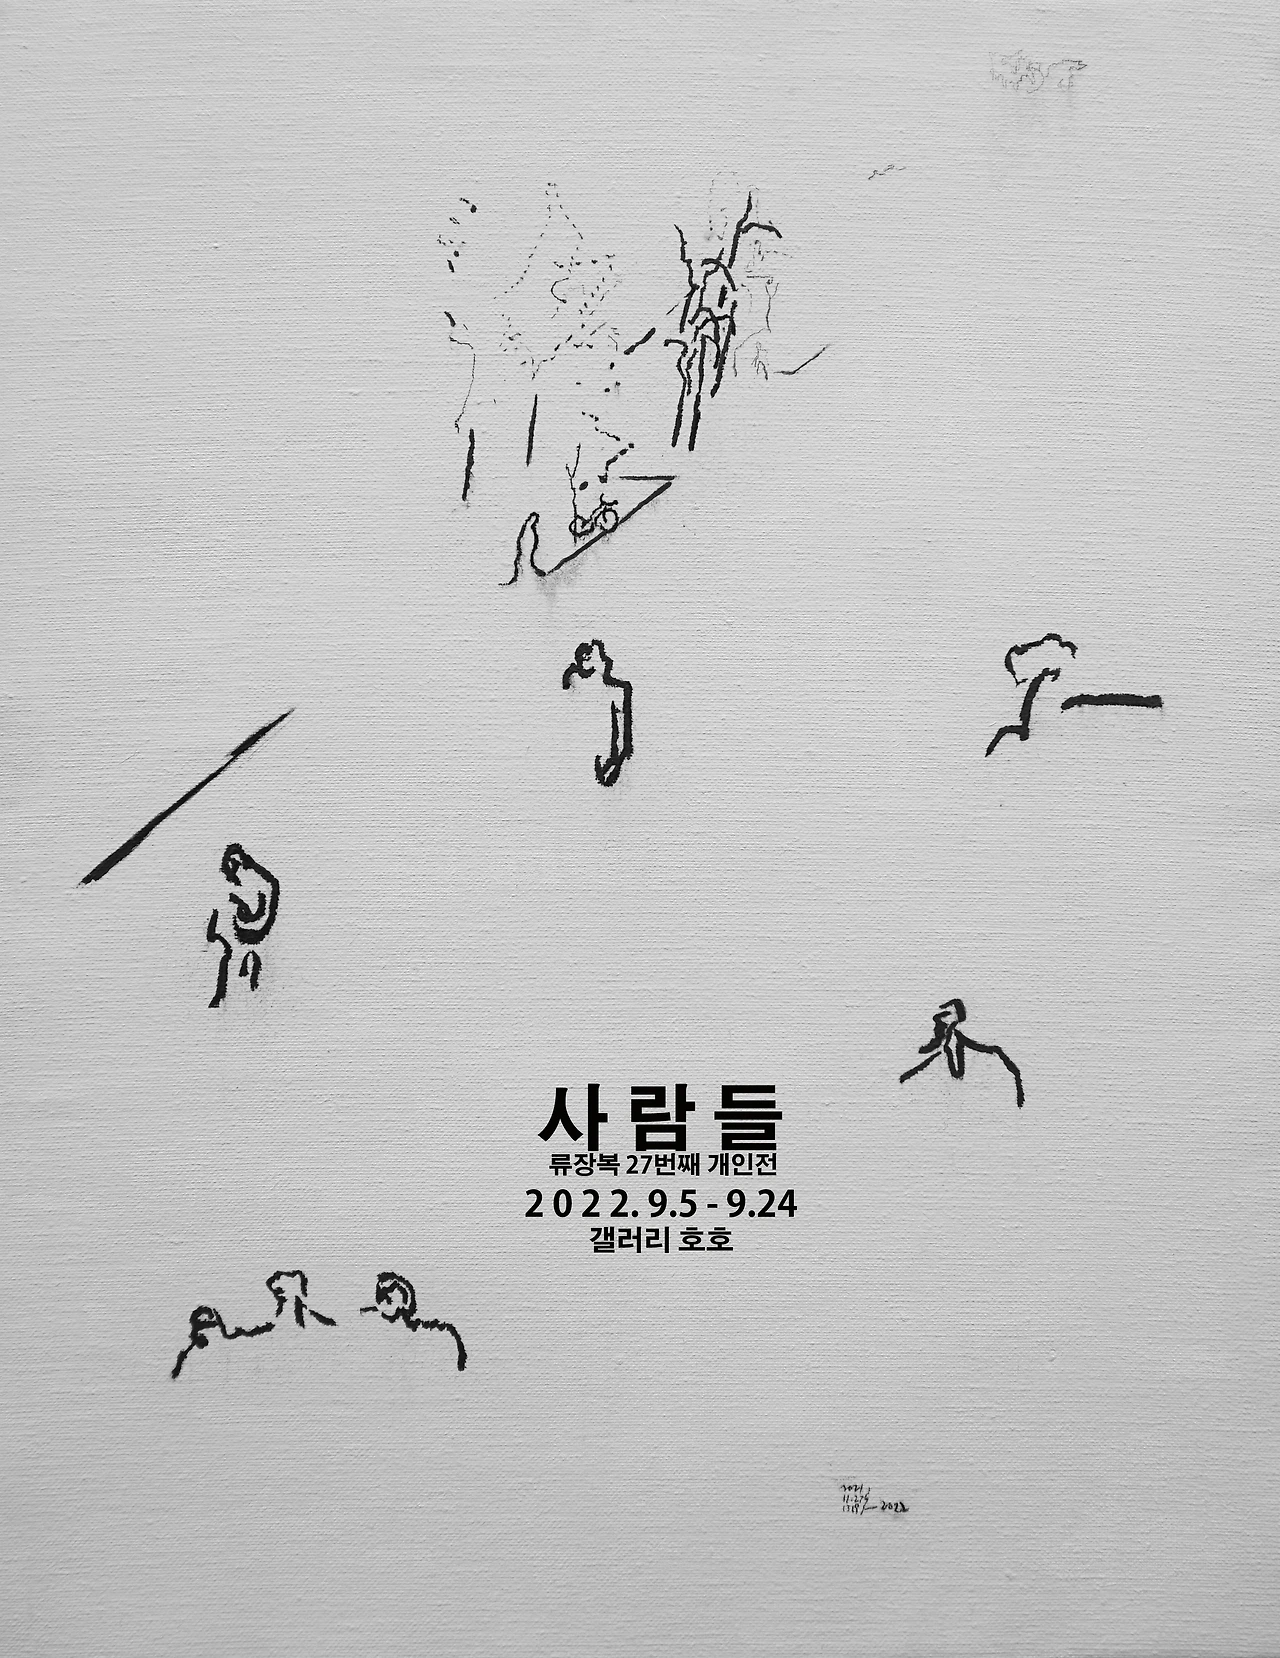 사람들
류장복 27번째 개인전
2022. 9.5 - 9.24
갤러리 호호
2021
2022